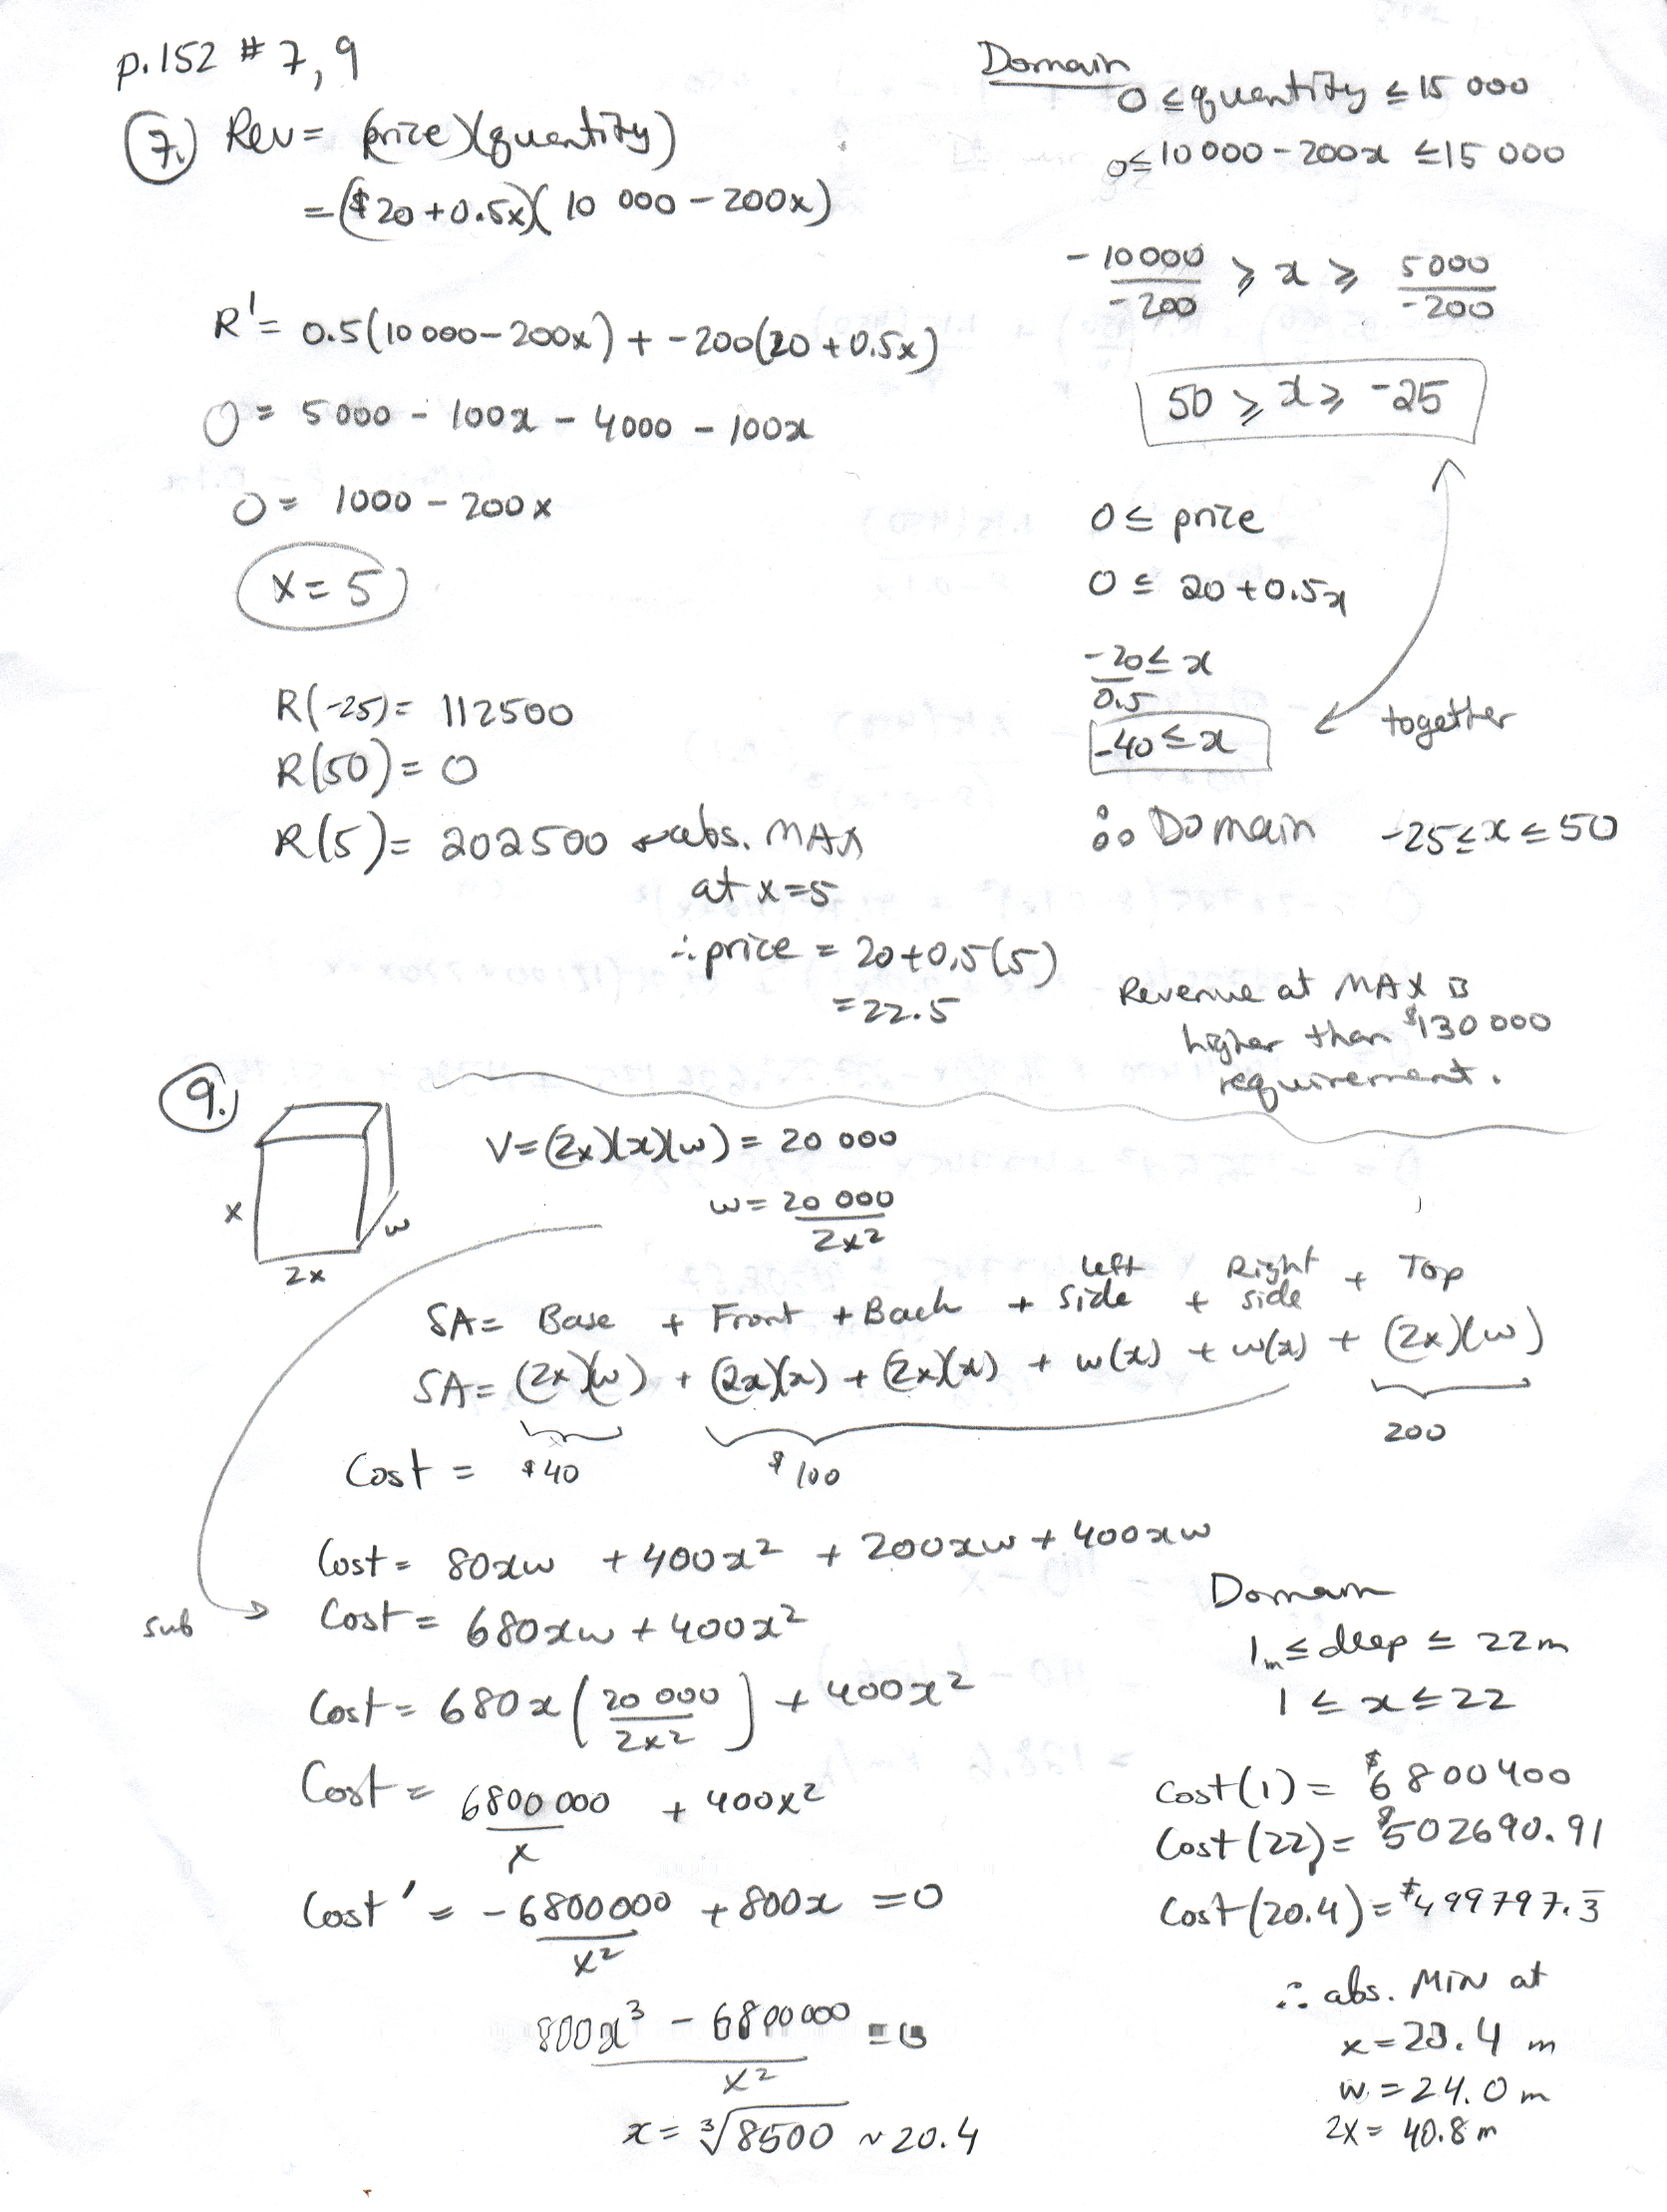 p.152 # 7, 9
7. Rev = (price)(quantity)
= ($20 + 0.5x)(10 000 - 200x)
R' = 0.5(10 000 - 200x) + -200(20 + 0.5x)
0 = 5000 - 100x - 4000 - 100x
0 = 1000 - 200x
x = 5
R(-25) = 112500
R(50) = 0
R(5) = 202500 ← abs. MAX
at x=5
∴ price = 20+0.5(5)
= 22.5
Domain
0 ≤ quantity ≤ 15 000
0 ≤ 10 000 - 200x ≤ 15 000
-10000/-200 ≥ x ≥ 5000/-200
50 ≥ x ≥ -25
0 ≤ price
0 ≤ 20 + 0.5x
-20/0.5 ≤ x
-40 ≤ x
together
∴ Domain -25 ≤ x ≤ 50
Revenue at MAX is
higher than $130 000
requirement.
9.
x
w
2x
V = (2x)(x)(w) = 20 000
w = 20 000/2x²
SA = Base + Front + Back + Left side + Right side + Top
SA = (2x)(w) + (2x)(x) + (2x)(x) + w(x) + w(x) + (2x)(w)
Cost = $40 $100 200
Cost = 80xw + 400x² + 200xw + 400xw
sub → Cost = 680xw + 400x²
Cost = 680x(20 000/2x²) + 400x²
Cost = 6800 000/x + 400x²
Cost' = -6800000/x² + 800x = 0
800x³ - 6800000/x² = 0
x = ³√8500 ~ 20.4
Domain
1m ≤ deep ≤ 22m
1 ≤ x ≤ 22
Cost(1) = $6 800400
Cost(22) = $502690.91
Cost(20.4) = $499797.3̄
∴ abs. MIN at
x = 20.4 m
w = 24.0 m
2x = 40.8 m